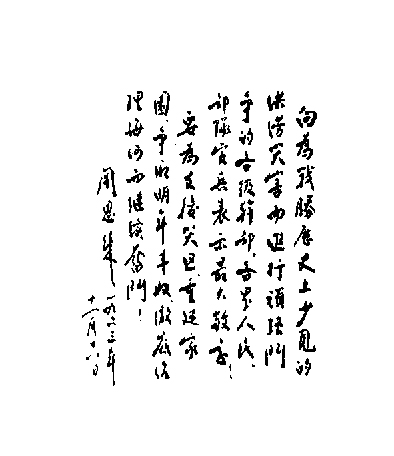 向为战胜历史上少见的
洪涝灾害而进行顽强斗
争的各级干部、各界人民、
部队官兵表示最大敬意！
要为支援灾区、重建家
园、争取明年丰收、彻底治
理海河而继续奋斗！
周恩来 一九六三年
十一月十六日